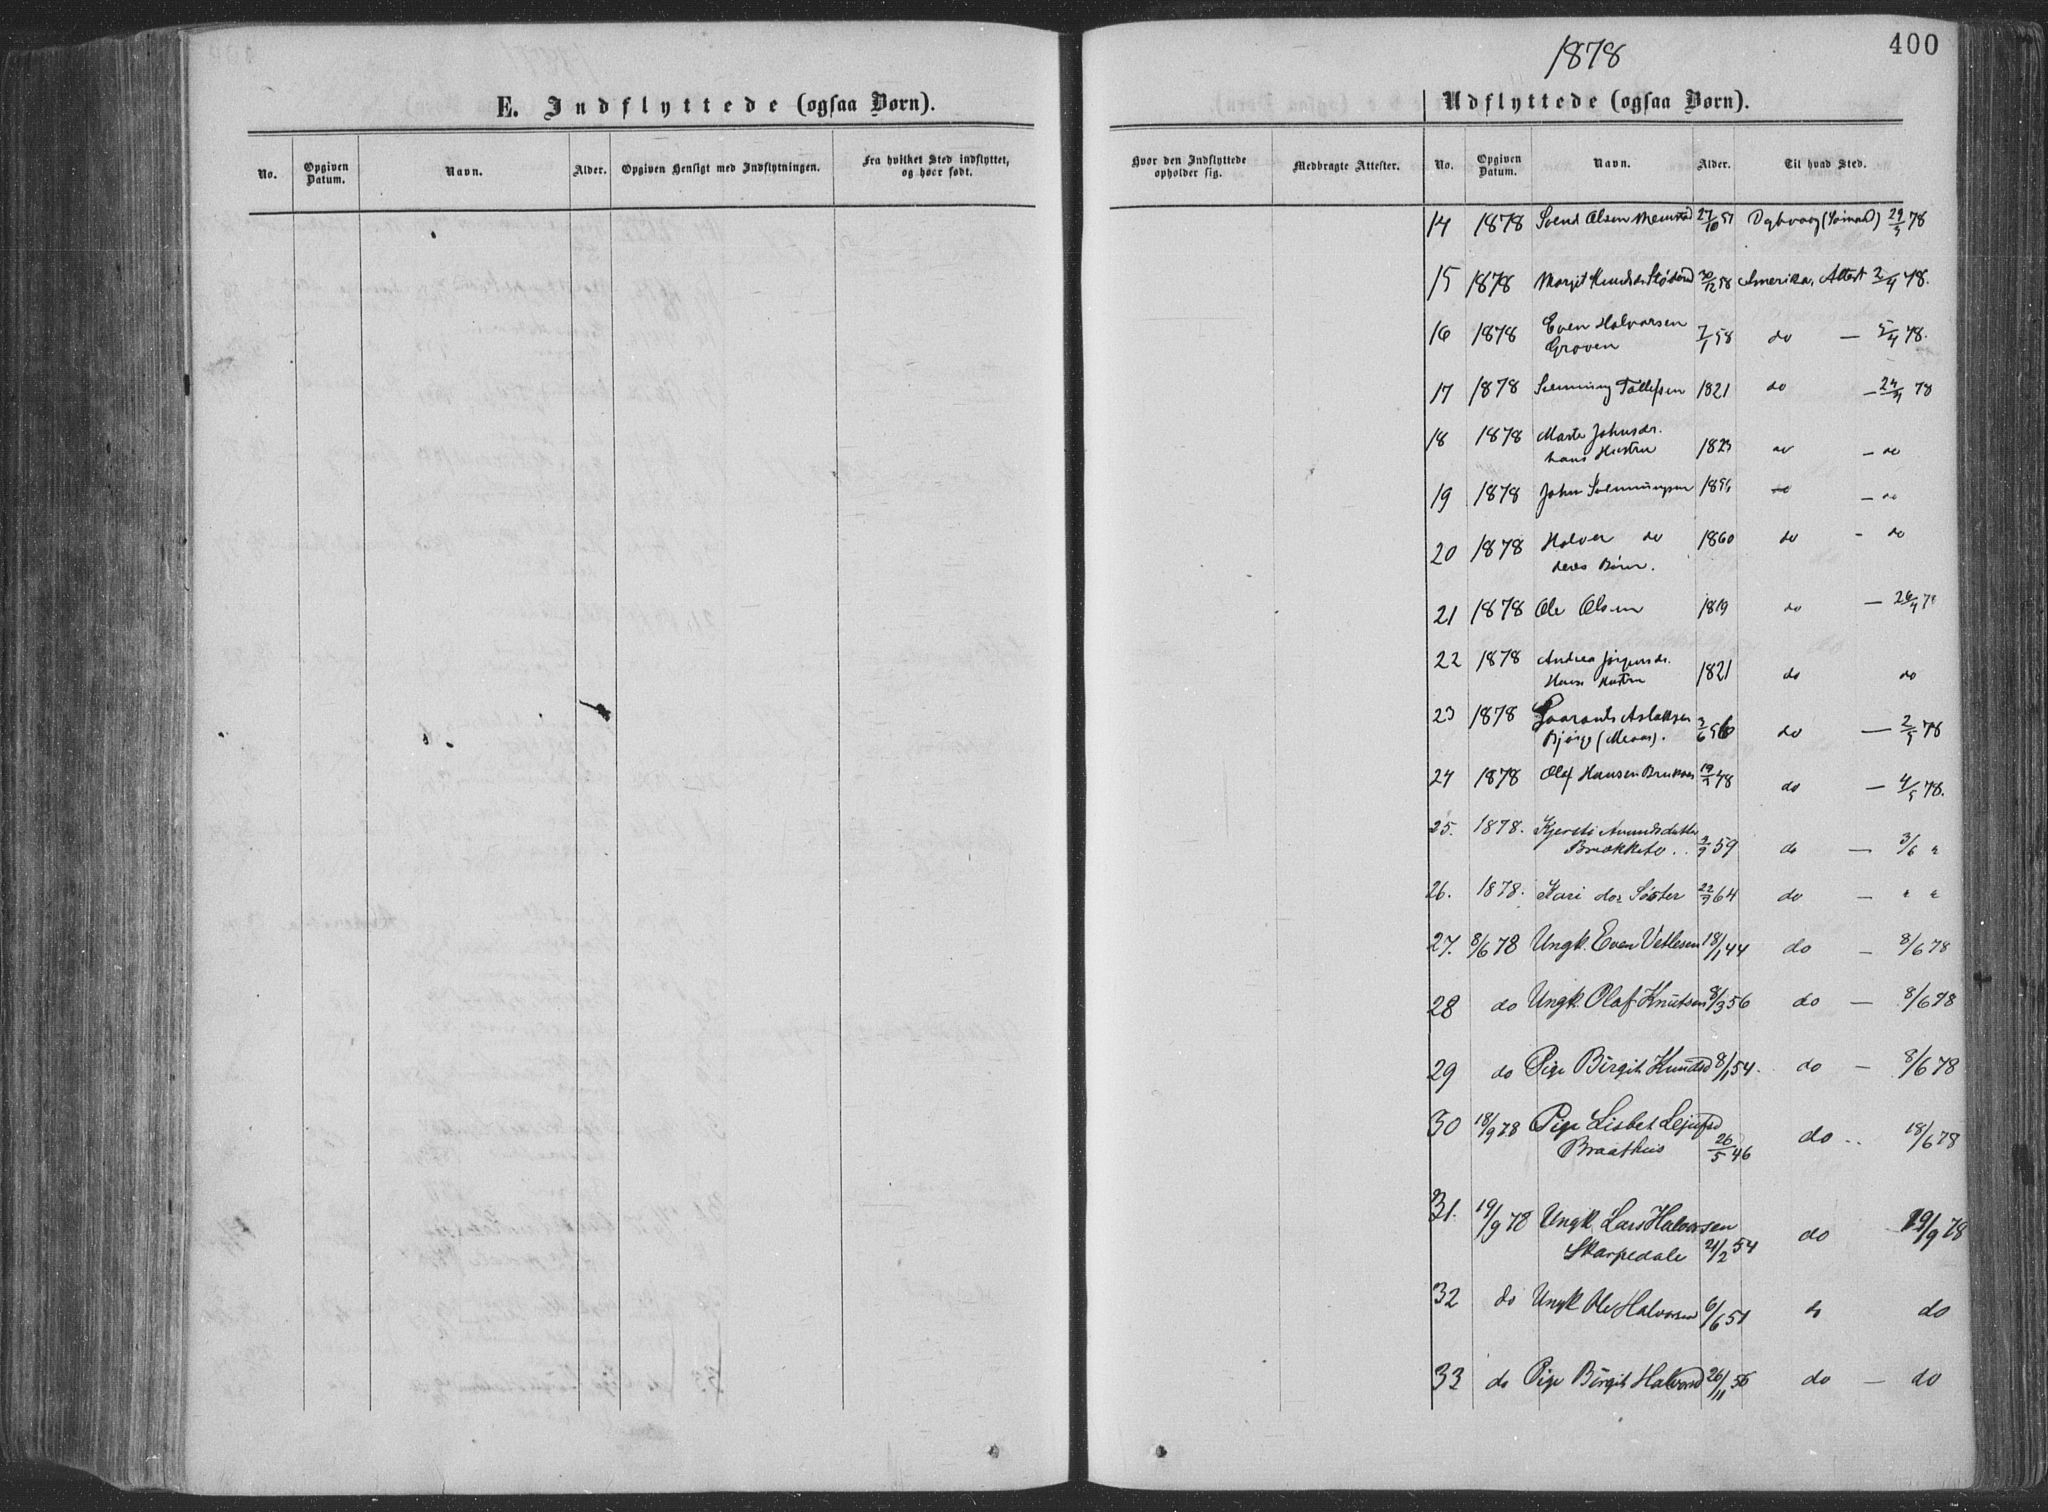 400
1878
E. Indflyttede (ogsaa Børn).
Udflyttede (ogsaa Børn).
No. Opgiven Datum. Navn. Alder. Opgiven Hensigt med Indflytningen. Fra hvilket Sted indflyttet, og hvor født.
Hvor den Indflyttede opholder sig. Medbragte Attester. No. Opgiven Datum. Navn. Alder. Til hvad Sted.
14 1878 Svend Olsen 27/10 57 Dybvaag 29/3 78
15 1878 Margit Knudsdr 30/12 58 Amerika, Attest 2/4 78.
16 1878 Even Halvorsen
Groven 7/1 58 do — 5/4 78.
17 1878 Svenning Tollefsen 1821 do — 24/4 78
18 1878 Marte Johnsdr.
hans Hustru 1823 do — do
19 1878 John Svenningsen do — do
20 1878 Halvor do 1860 do - do
deres Børn.
21 1878 Ole Olsen 1819 do — 26/4 7
22 1878 Andrea Jørgensdr.
Hans Hustru 1821 do do
23 1878 Aslaksen
Bjørge do — 2/5 78
24 1878 Olaf Hansen 19/5 48 do — 4/5 78.
25. 1878. Kjersti Amundsdatter
Brækketo 59 do — 3/6 "
26. 1878. Kari do Søster 22/9 64 do — " "
27. 8/6 78 Ungk. Even Vetlesen 18/1 44 do — 8/6 78
28 do Ungk. Olaf Knutsen 8/3 56 do — 8/6 78
29 do Pige Birgit Knudsd 8/1 54. do — 8/6 78
30 18/9 78 Pige Lisbet Lejufsd
Braathus 26/5 46 do 18/6 78
31. 19/9 78 Ungk Lars Halvorsen
Skarpedale 21/2 54 do 19/9 78
32 do Ungk Ole Halvorsen 6/6 51 do do
33 do Pige Birgit Halvorsd 26/11 56 do — do